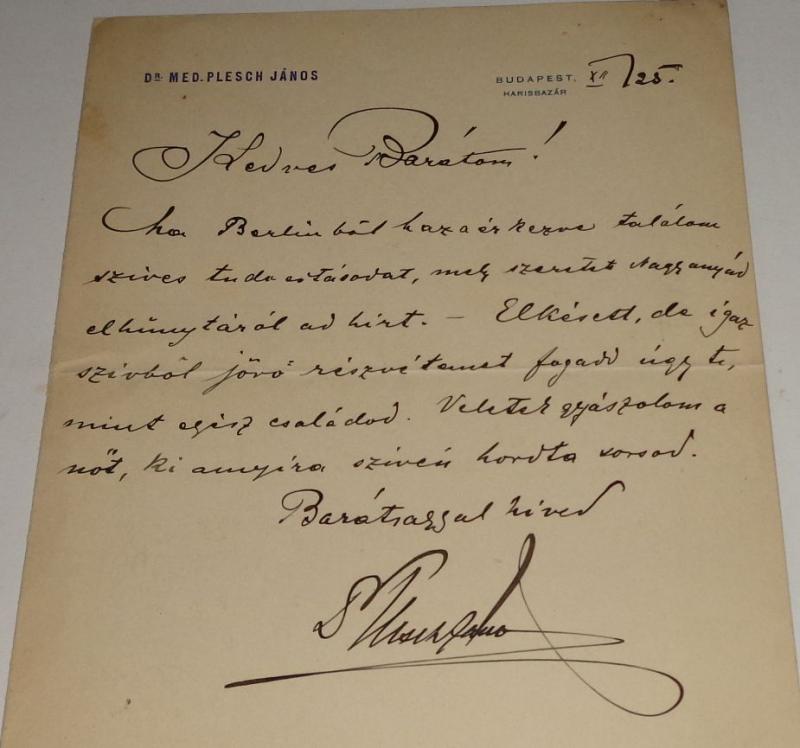 DR. MED. PLESCH JÁNOS
BUDAPEST, XII/25.
HARISBAZÁR
Kedves Barátom!
Ma Berlinből hazaérkezve találom
szives tudositásodat, mely szeretett Nagyanyád
elhúnytáról ad hirt. — Elkésett, de igaz
szivből jövő részvétemet fogadd úgy te,
mint egész családod. Veletek gyászolom a
nőt, ki annyira szivén hordta sorsod.
Barátsággal hived
Dr Plesch János